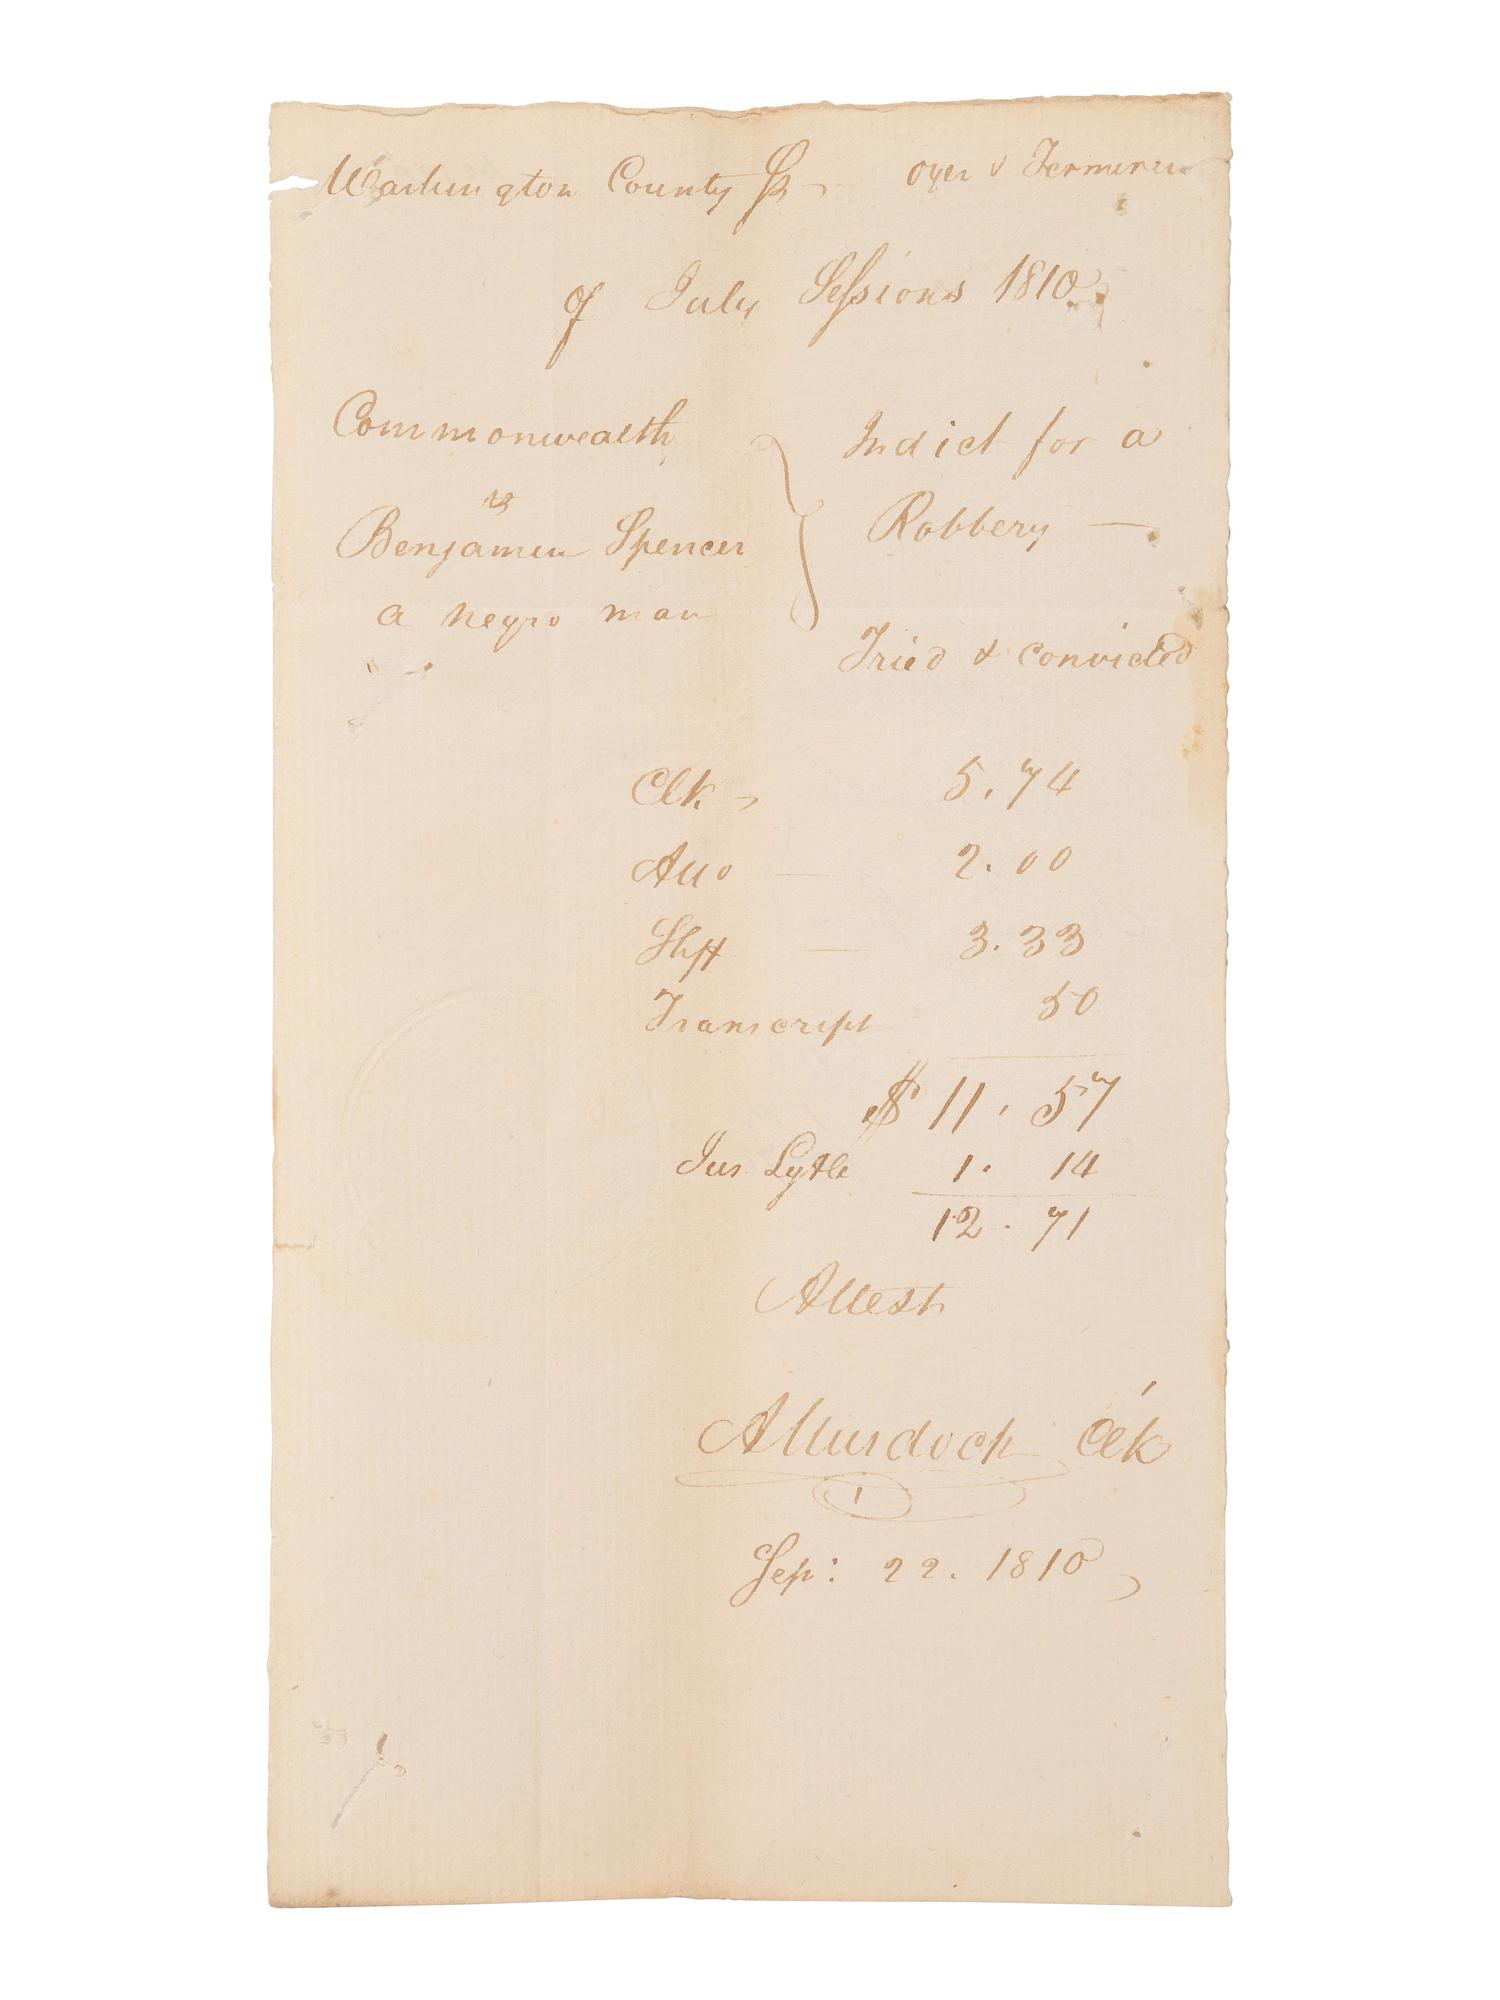 Washington County Ss Oyer & Terminer
of July Sessions 1810.
Commonwealth
vs
Benjamin Spencer
a negro man
Indict for a
Robbery —
Tried & convicted
Clk 5.74
Atto — 2.00
Shff — 3.33
Transcript 50
$ 11.57
Jus Lytle 1.14
12.71
Attest
AMurdoch Clk
Sep: 22. 1810